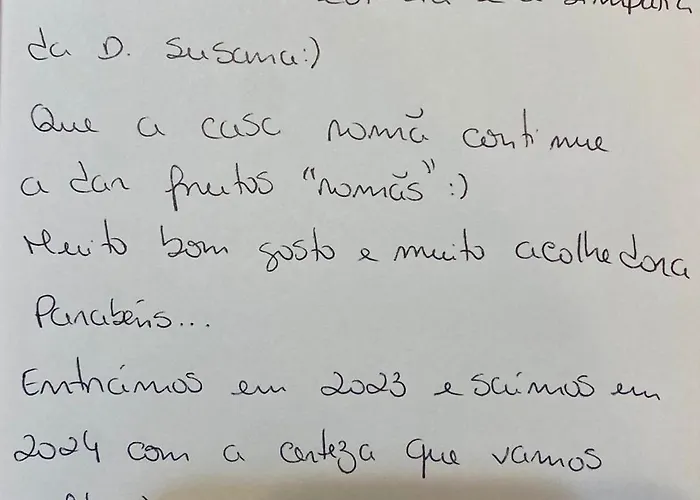 da D. Susana:)
Que a casa romã continue
a dar frutos "romãs" :)
Muito bom gosto e muito acolhedora
Parabéns...
Entrámos em 2023 e saímos em
2024 com a certeza que vamos